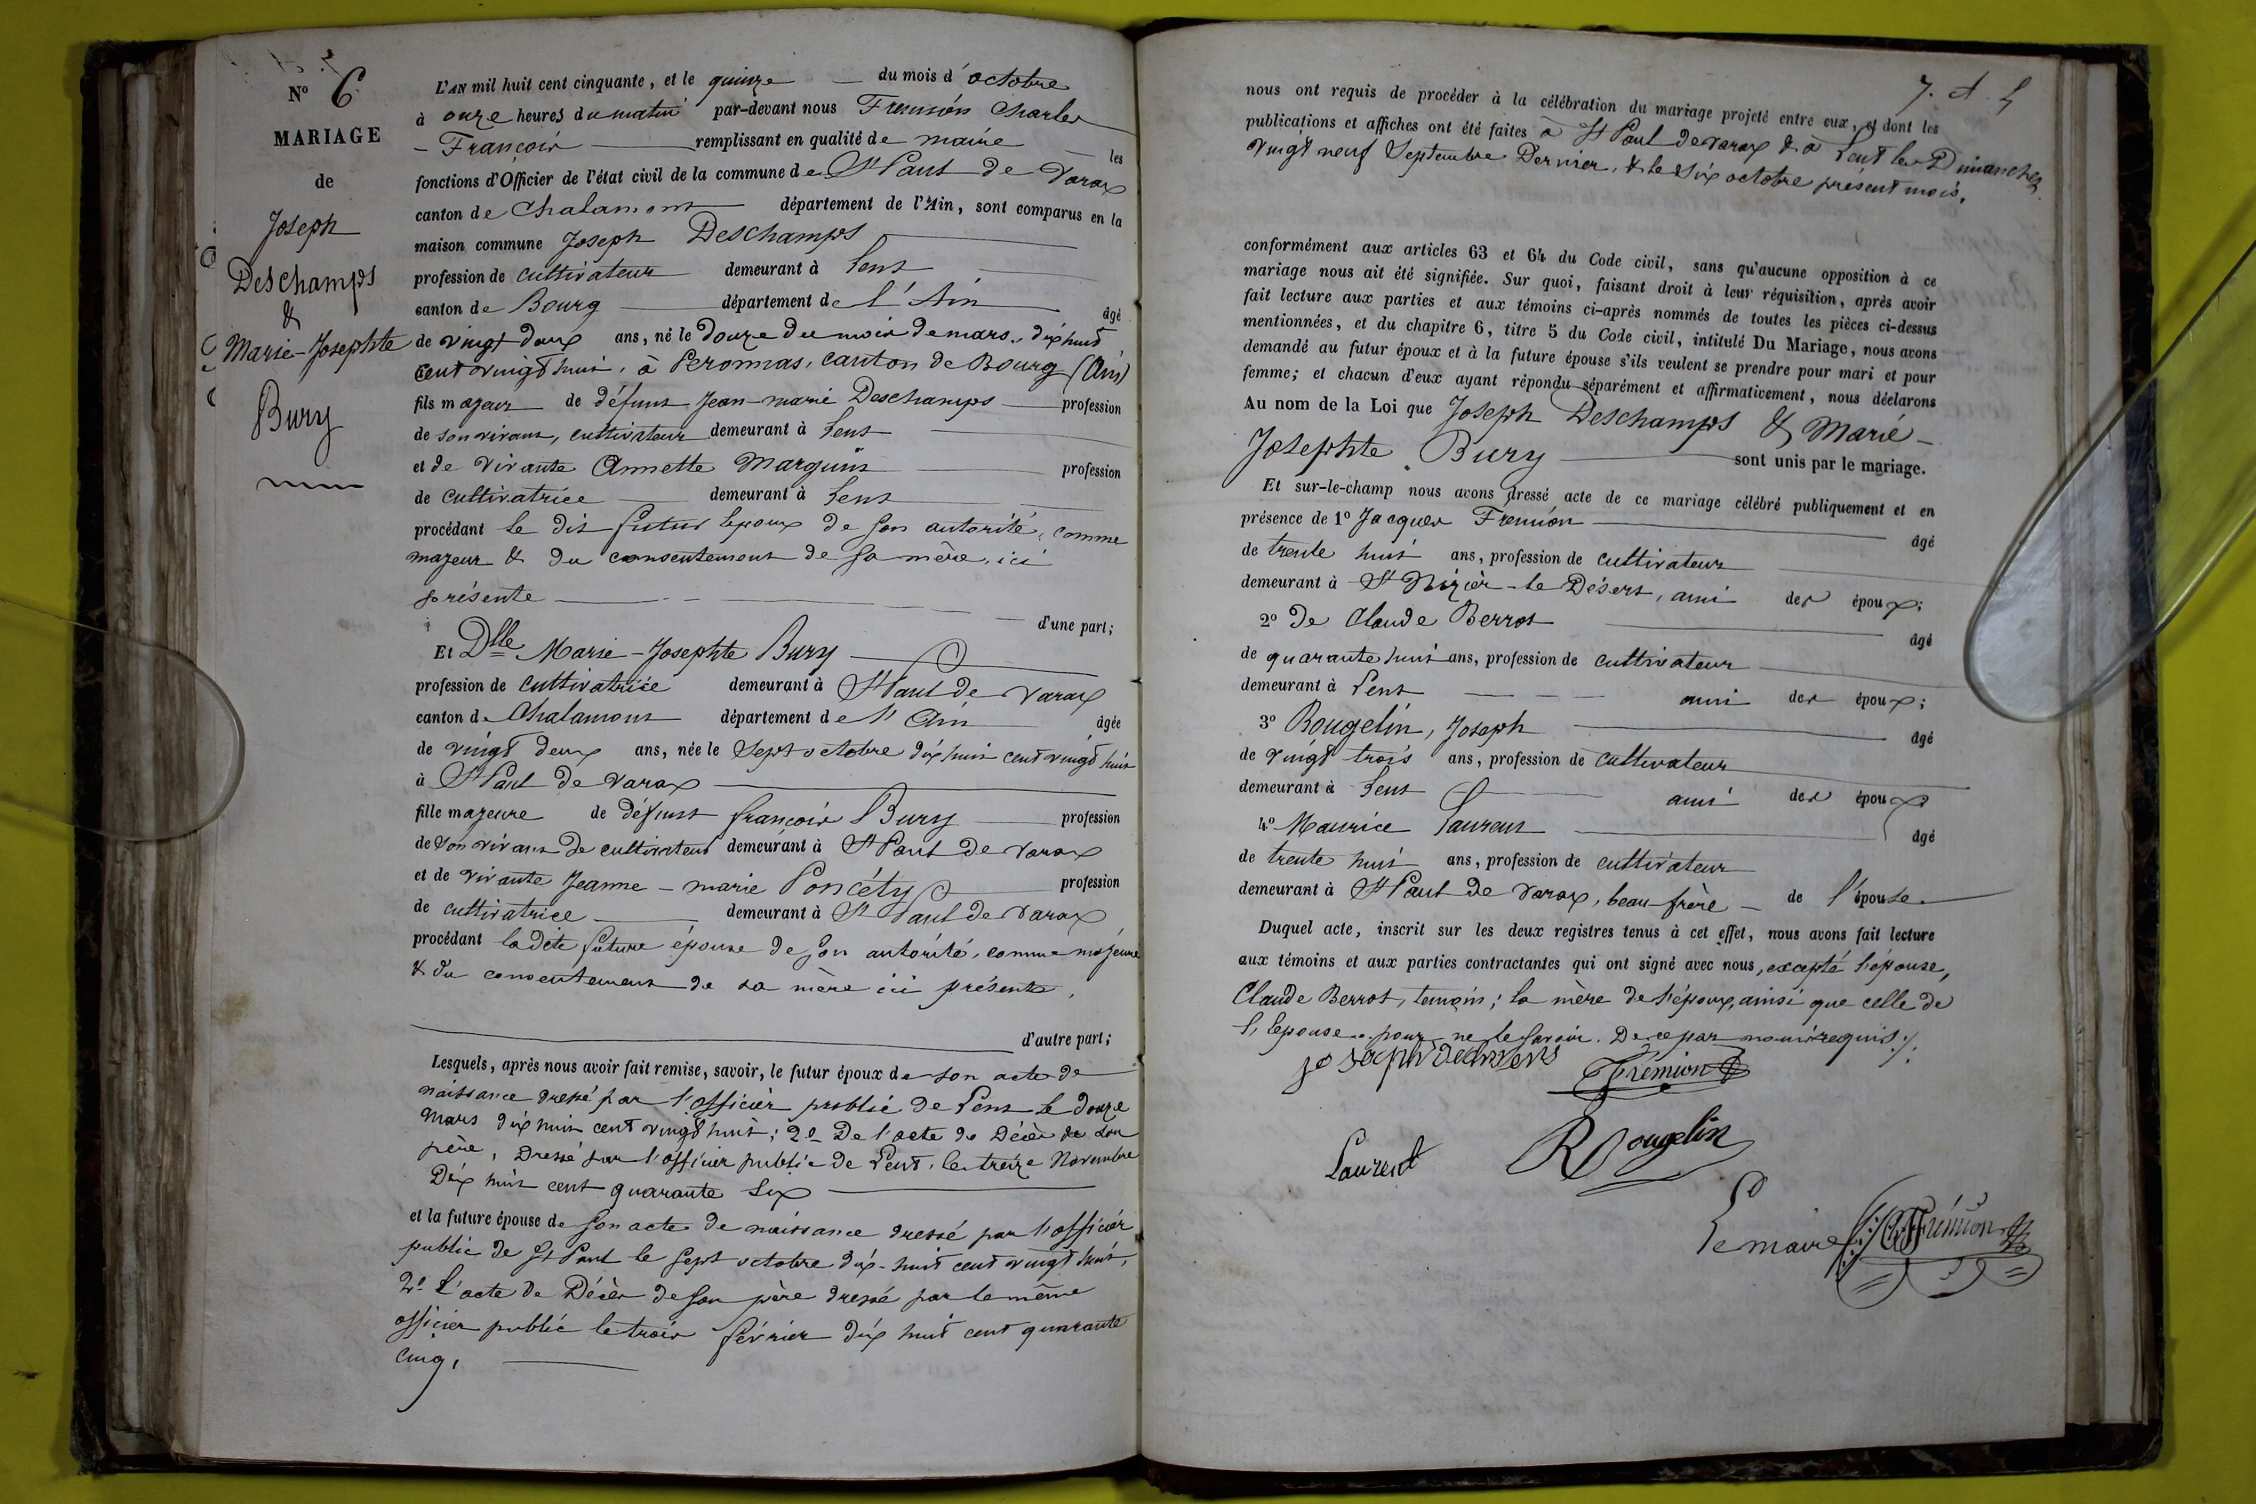 N° 6
MARIAGE
de
Joseph
Deschamps
&
Marie-Josephte
Bury
L'AN mil huit cent cinquante, et le quinze du mois d'octobre
à onze heures du matin par-devant nous Fremion Charles
- François remplissant en qualité de maire les
fonctions d'Officier de l'état civil de la commune de St Paul de Varax
canton de Chalamont département de l'Ain, sont comparus en la
maison commune Joseph Deschamps
profession de cultivateur demeurant à Lent
canton de Bourg département de l'Ain âgé
de vingt deux ans, né le douze du mois de mars, dix huit
cent vingt huit, à Peronnas, canton de Bourg (Ain)
fils majeur de défunt Jean-marie Deschamps profession
de son vivant, cultivateur demeurant à Lent
et de vivante Annette Marguin profession
de cultivatrice demeurant à Lent
procédant le dit futur lepoux de son autorité, comme
majeur & du consentement de sa mère, ici
présente
d'une part;
Et Dlle Marie-Josephte Bury
profession de cultivatrice demeurant à St Paul de Varax
canton de Chalamont département de l'Ain âgée
de vingt deux ans, née le Sept octobre dix huit cent vingt huit
à St Paul de Varax
fille majeure de défunt françois Bury profession
de son vivant de cultivateur demeurant à St Paul de Varax
et de vivante Jeanne-marie Poncéty profession
de cultivatrice demeurant à St Paul de Varax
procédant la dite future épouse de son autorité, comme majeure
& du consentement de sa mère ici présente,
d'autre part;
Lesquels, après nous avoir fait remise, savoir, le futur époux de son acte de
naissance dressé par l'officier public de Lent le douze
mars dix huit cent vingt huit; 2° De l'acte de Décès de son
père, dressé par l'officier public de Lent, le treize Novembre
Dix huit cent quarante six
et la future épouse de son acte de naissance dressé par l'officier
public de St Paul le Sept octobre dix-huit cent vingt huit,
2° L'acte de Décès de son père dressé par le même
officier public le trois février dix huit cent quarante
cinq,
nous ont requis de procéder à la célébration du mariage projeté entre eux, et dont les
publications et affiches ont été faites à St Paul de varax & à Lent les Dimanches
vingt neuf Septembre Dernier, & le Six octobre présent mois,
conformément aux articles 63 et 64 du Code civil, sans qu'aucune opposition à ce
mariage nous ait été signifiée. Sur quoi, faisant droit à leur réquisition, après avoir
fait lecture aux parties et aux témoins ci-après nommés de toutes les pièces ci-dessus
mentionnées, et du chapitre 6, titre 5 du Code civil, intitulé Du Mariage, nous avons
demandé au futur époux et à la future épouse s'ils veulent se prendre pour mari et pour
femme; et chacun d'eux ayant répondu séparément et affirmativement, nous déclarons
Au nom de la Loi que Joseph Deschamps & Marie-
Josephte Bury sont unis par le mariage.
Et sur-le-champ nous avons dressé acte de ce mariage célébré publiquement et en
présence de 1° Jacques Fremion âgé
de trente huit ans, profession de cultivateur
demeurant à St Nizier-le Désert, ami des époux;
2° De Claude Berrot âgé
de quarante huit ans, profession de cultivateur
demeurant à Lent ami des époux;
3° Rougelin, Joseph âgé
de vingt trois ans, profession de cultivateur
demeurant à Lent ami des époux
4° Maurice Laurent âgé
de trente huit ans, profession de cultivateur
demeurant à St Paul de Varax, beau-frère de l'épouse
Duquel acte, inscrit sur les deux registres tenus à cet effet, nous avons fait lecture
aux témoins et aux parties contractantes qui ont signé avec nous, excepté l'épouse,
Claude Berrot, temoin; la mère de l'époux, ainsi que celle de
l'lepouse pour ne le savoir. De ce par nous requis
Joseph
Frémion
Laurent
Rougelin
Le maire Frémion